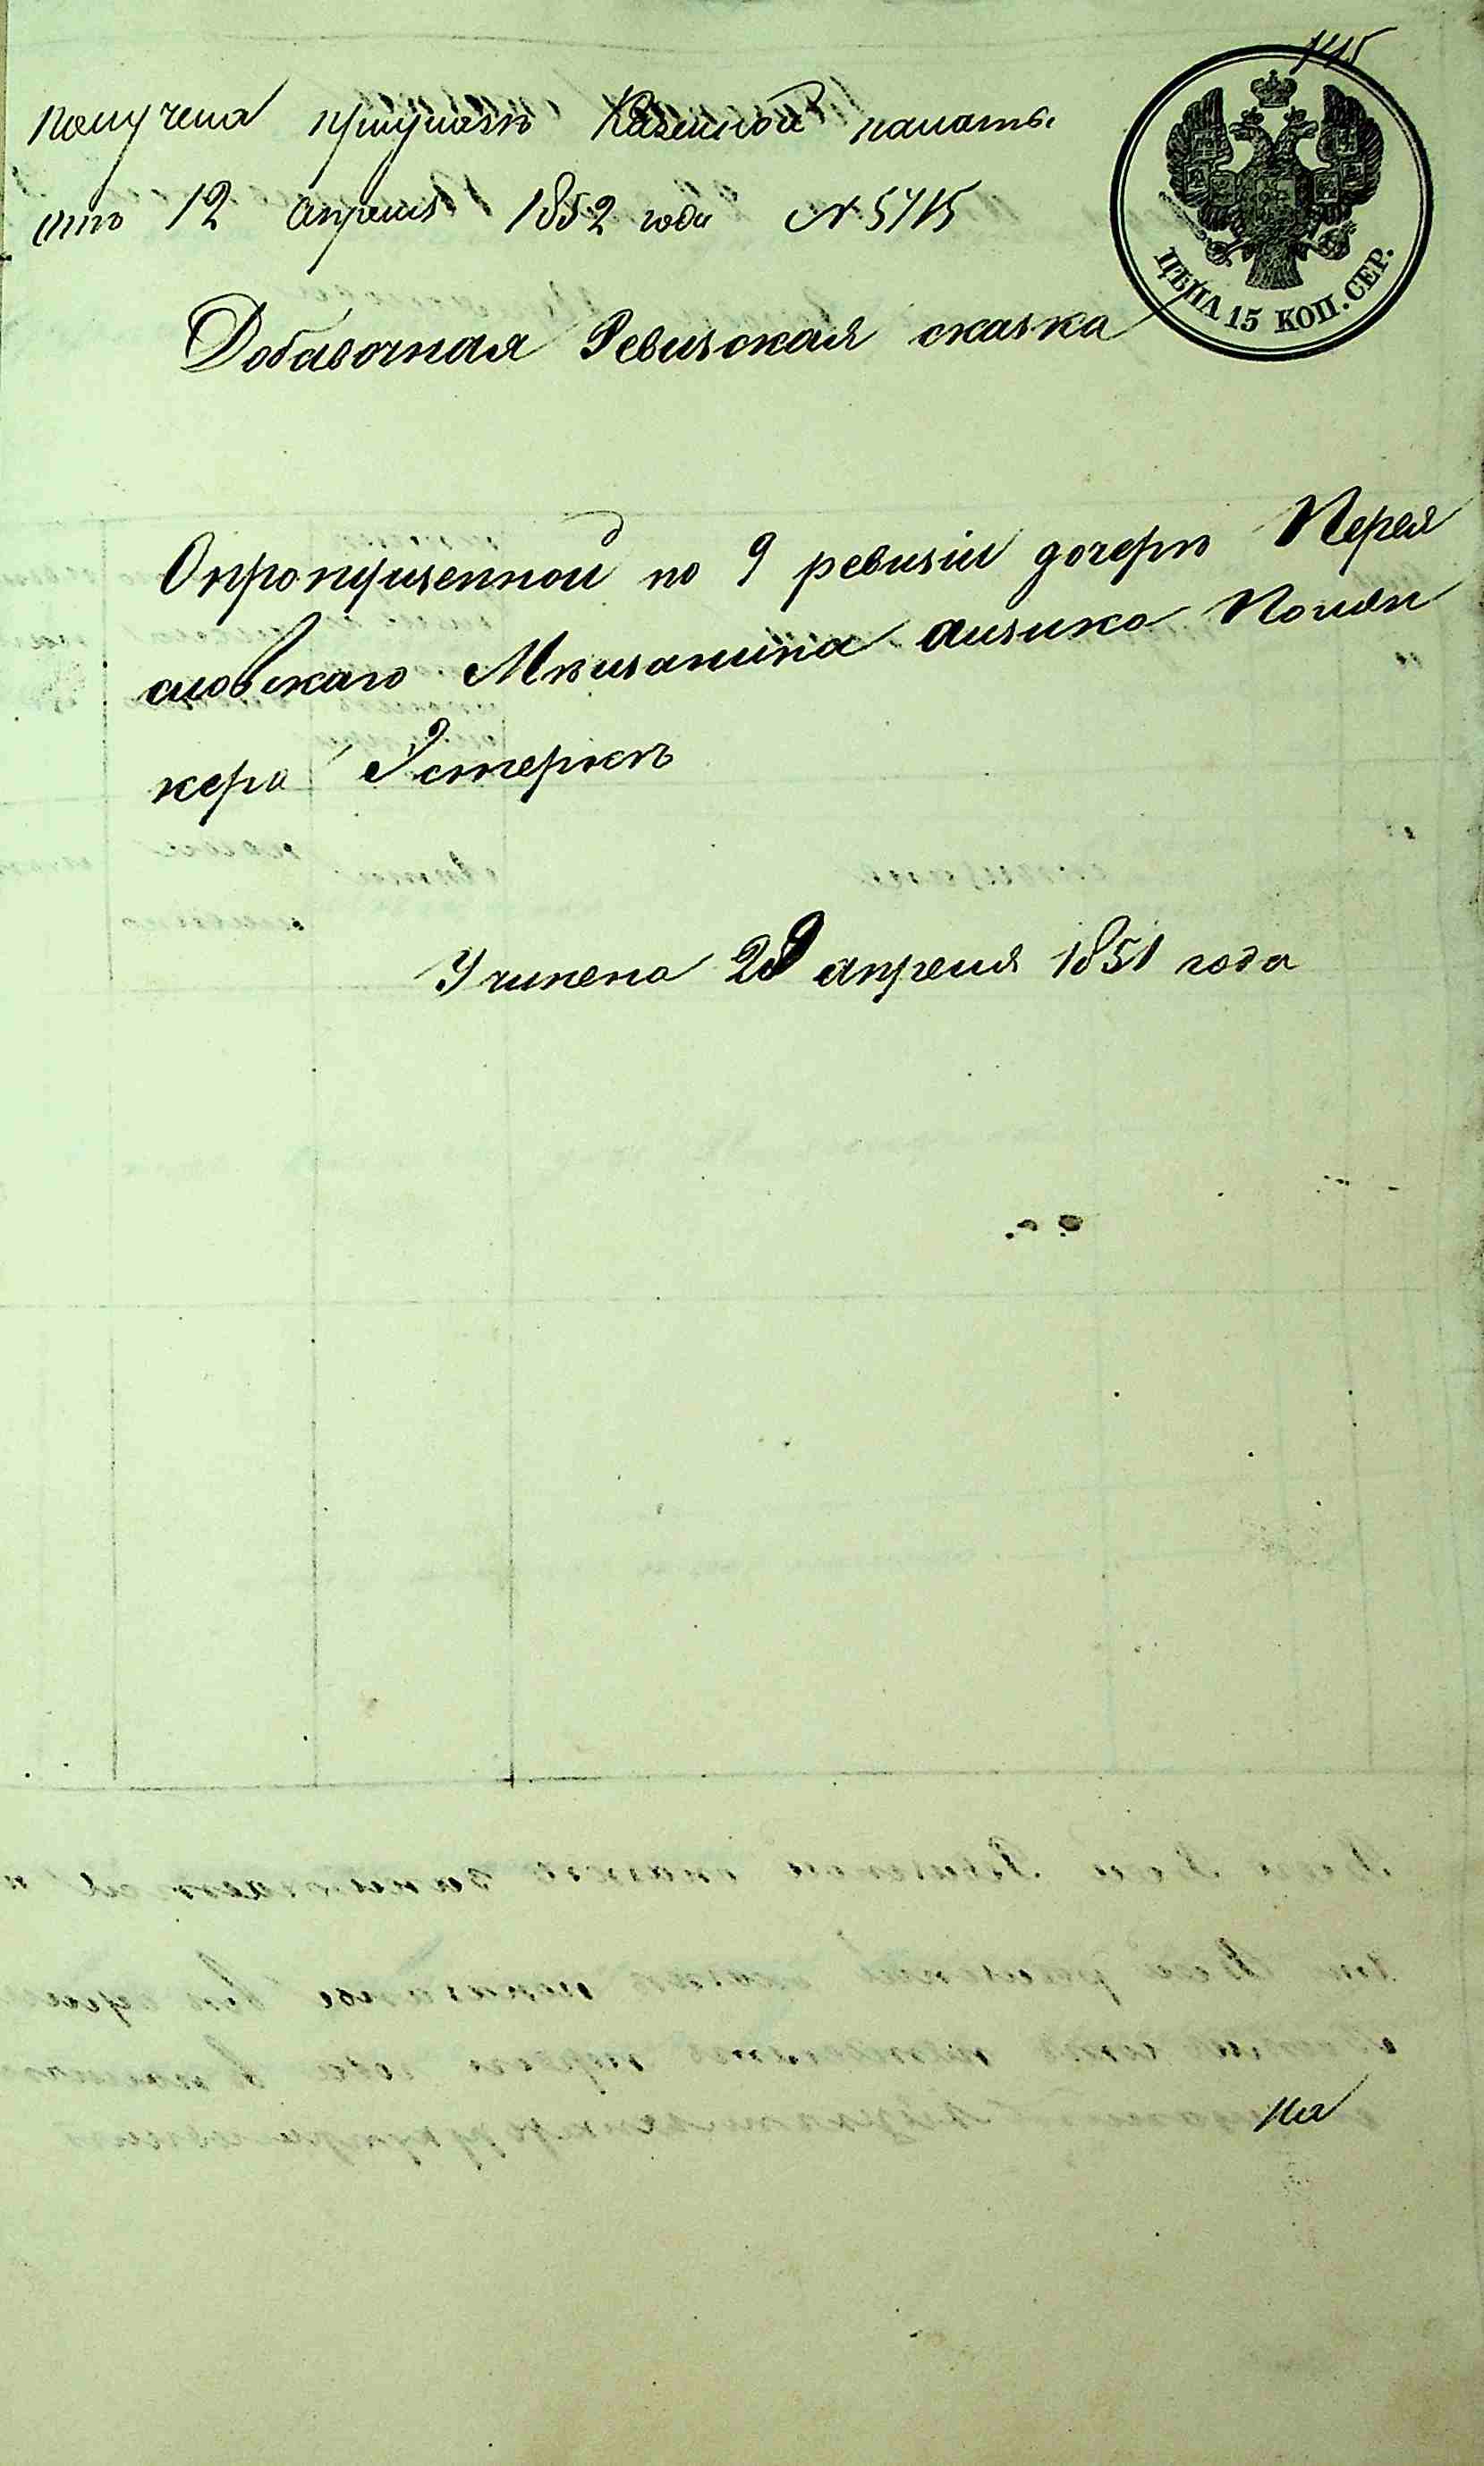 145
Получена приуказѣ Казенной палаты
отъ 12 апреля 1852 года № 5715
ЦѢНА 15 КОП. СЕР.
Добавочная Ревизская сказка
Опропущенной по 9 ревизіи дочерѣ Перея
словскаго Мѣщанина Аизика Полян
кера Эстеркѣ
Учинена 29 апреля 1851 года
На